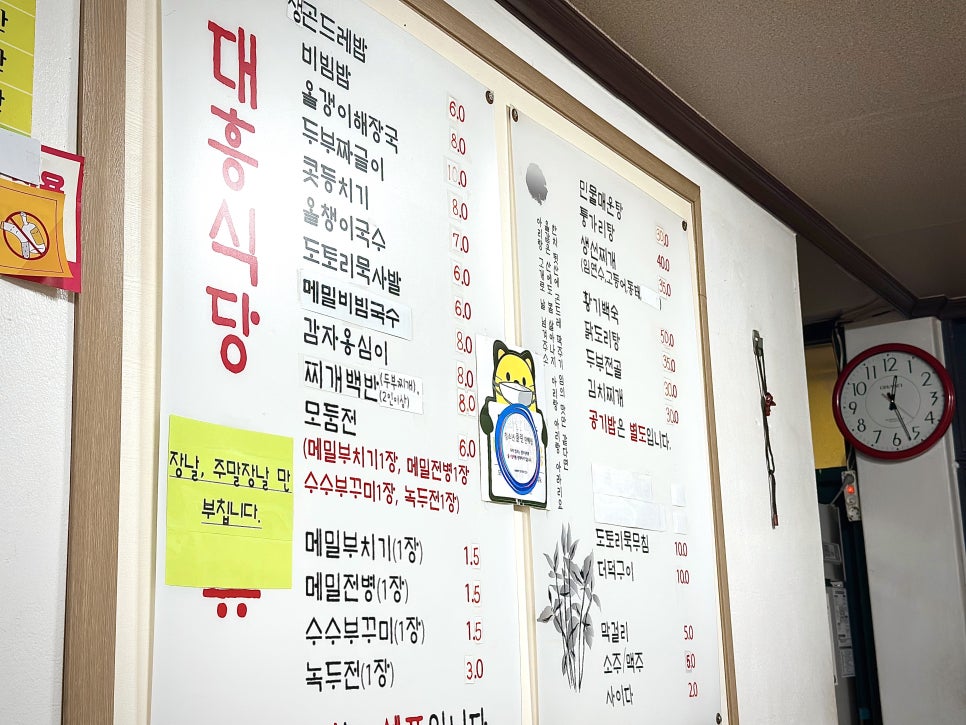 대흥식당
생곤드레밥
비빔밥 6.0
올갱이해장국 8.0
두부짜글이 10.0
콧등치기 8.0
올챙이국수 7.0
도토리묵사발 6.0
메밀비빔국수 6.0
감자옹심이 8.0
찌개백반(두부찌개) 8.0
(2인이상) 8.0
모둠전 6.0
(메밀부치기1장, 메밀전병1장
수수부꾸미1장, 녹두전1장)
메밀부치기(1장) 1.5
메밀전병(1장) 1.5
수수부꾸미(1장) 1.5
녹두전(1장) 3.0
장날, 주말장날 만
부칩니다.
민물매운탕 30.0
퉁가리탕 40.0
생선찌개 35.0
(임연수,고등어,동태)
황기백숙 50.0
닭도리탕 35.0
두부전골 30.0
김치찌개 30.0
공기밥은 별도입니다.
도토리묵무침 10.0
더덕구이 10.0
막걸리 5.0
소주/맥주 5.0
사이다 2.0
12
1
2
3
4
5
6
7
8
9
10
11